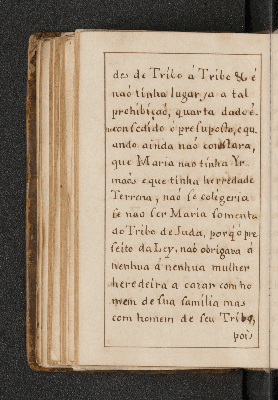 des de Tribo á Tribo & é
naõ tinha lugar ja a tal
prohibiçaõ, quarta dado é
concedido o presuposto, e qu
ando ainda nao constara,
que Maria nao tinha Yr-
maõs e que tinha herredade
Terrena, naõ se coligeria
de nao ser Maria somenta
do Tribo de Juda, porq̃ o pre
seito da Ley, naõ obrigava á
nenhua á nenhua mulher
heredeira a cazar com ho
mem de sua familia mas
com homem de seu Tribo,
pois